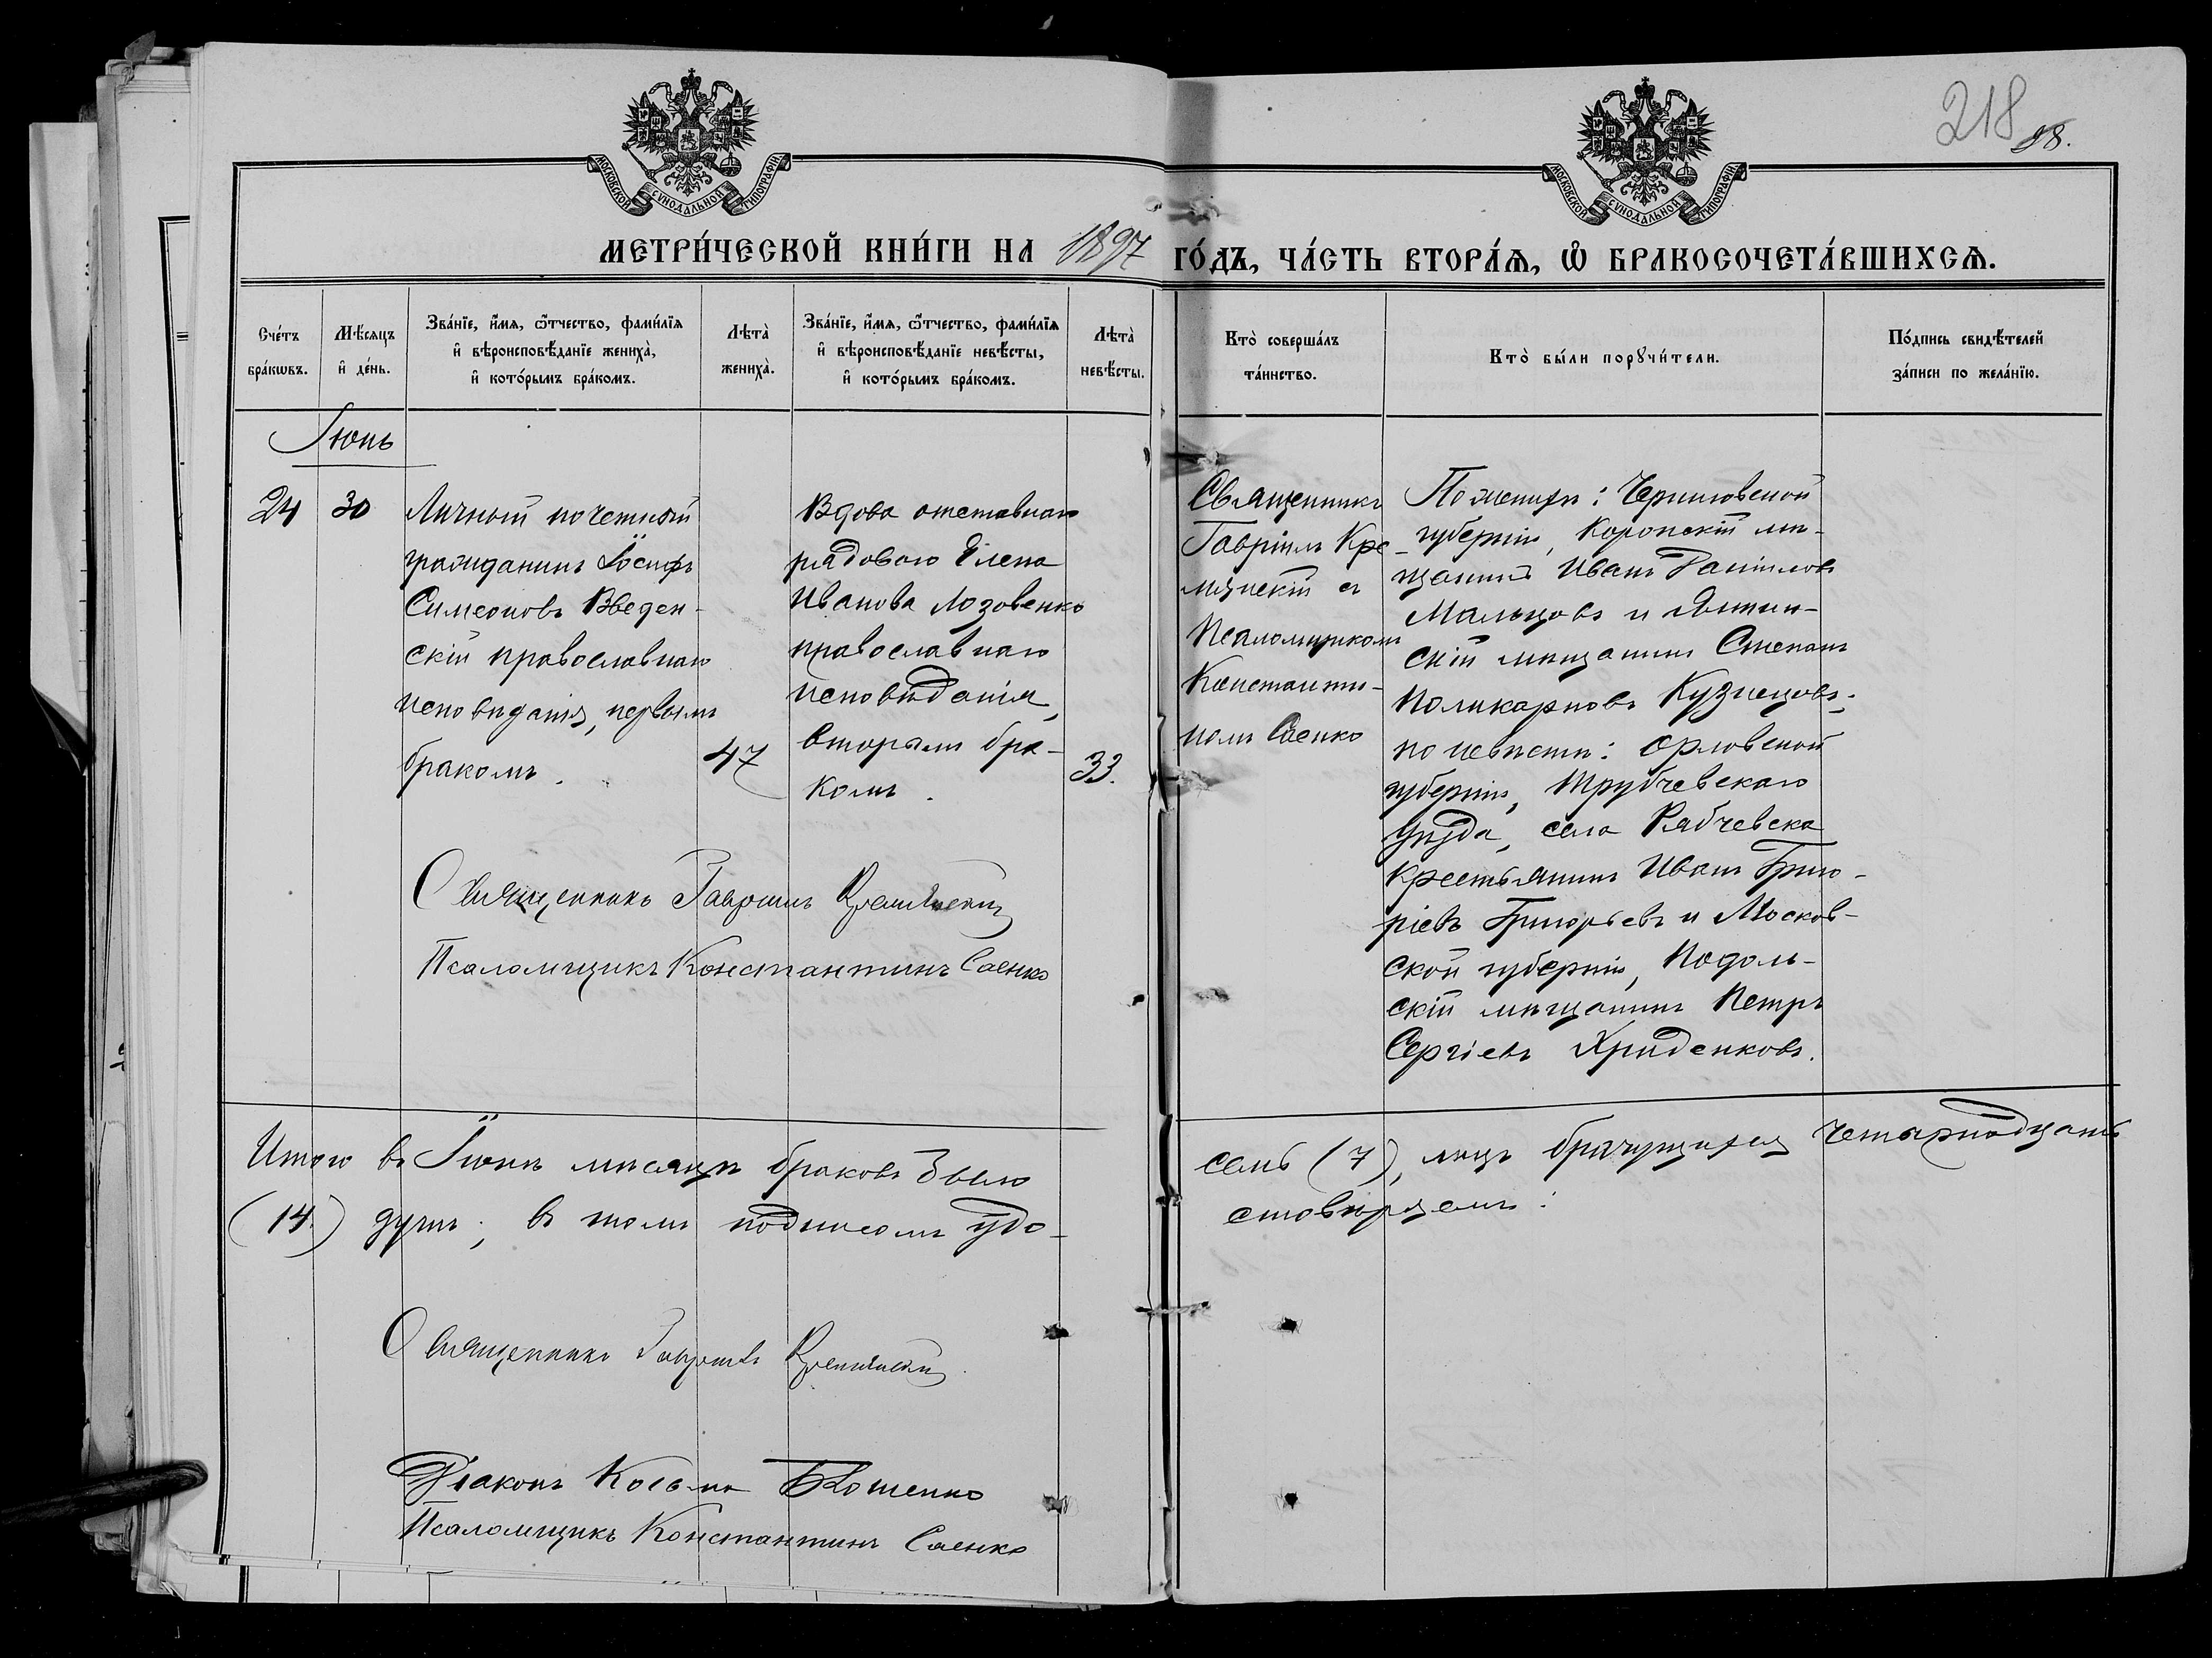 МОСКОВСКОЙ СУНОДАЛЬНОЙ ТИПОГРАФІИ
МОСКОВСКОЙ СУНОДАЛЬНОЙ ТИПОГРАФІИ
218
98.
МЕТРИ́ЧЕСКОЙ КНИ́ГИ НА 1897 ГО́ДЪ, ЧА́СТЬ ВТОРА́Я, Ѡ БРАКОСОЧЕТА́ВШИХСЯ.
Сче́тъ
бра́кѡвъ.
Мѣ́сяцъ
и҆ де́нь.
Зва́нїе, и҆́мя, ѻ҆́тчество, фами́лїя
и҆ вѣроисповѣ́данїе жениха̀,
и҆ кото́рымъ бра́комъ.
Лѣта̀
жениха̀.
Зва́нїе, и҆́мя, ѻ҆́тчество, фами́лїя
и҆ вѣроисповѣ́данїе невѣ́сты,
и҆ кото́рымъ бра́комъ.
Лѣта̀
невѣ́сты.
Кто̀ соверша́лъ
та́инство.
Кто̀ бы́ли порꙋчи́тели.
По́дпись свидѣ́телей
за́писи по жела́нїю.
Іюнь
24
30
Личный почетный
гражданинъ Іосифъ
Симеоновъ Введен-
скій православнаго
исповѣданія, первымъ
бракомъ.
47
Вдова отставнаго
рядового Елена
Иванова Лозовенко
православнаго
исповѣданія,
вторымъ бра-
комъ.
33.
Священникъ
Гавріилъ Кре-
мянскій съ
Псаломщикомъ
Константи-
номъ Саенко
По женихѣ: Черниговской
губерніи, Коропскій мѣ-
щанинъ Иванъ Даніиловъ
Мальцовъ и
скій мѣщанинъ Степанъ
Поликарповъ Кузнецовъ;
по невѣстѣ: Орловской
губерніи, Трубчевскаго
уѣзда, села Рябчевска
крестьянинъ Иванъ Григо-
ріевъ Григорьевъ и Москов-
ской губерніи, Подоль-
скій мѣщанинъ Петръ
Сергіевъ Хриденковъ.
Священникъ Гавріилъ Кремянскій
Псаломщикъ Константинъ Саенко
Итого въ Іюнѣ мѣсяцѣ браковъ было семь (7), лицъ брачущихся четырнадцать
(14.) душъ; въ томъ подписомъ удо-
стовѣряемъ:
Священникъ Гавріилъ Кремянскій
Діаконъ Косьма
Псаломщикъ Константинъ Саенко